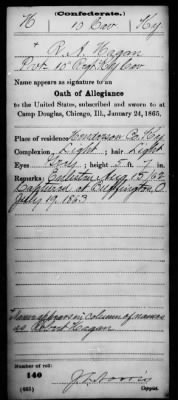 (Confederate.)
H | 10 Cav | Ky
R. A. Hagan
Pvt 10 Regt Ky Cav
Name appears as signature to an
Oath of Allegiance
to the United States, subscribed and sworn to at
Camp Douglas, Chicago, Ill., January 24, 1865.
Place of residence Henderson Co. Ky
Complexion Light; hair Light
Eyes Grey; height 5 ft. 7 in.
Remarks: Enlisted Aug 15/62
Captured at Buffington O.
July 19, 1863
Name appears in column of names
as Robert Hagan
Number of roll:
140
(665)
Copyist.